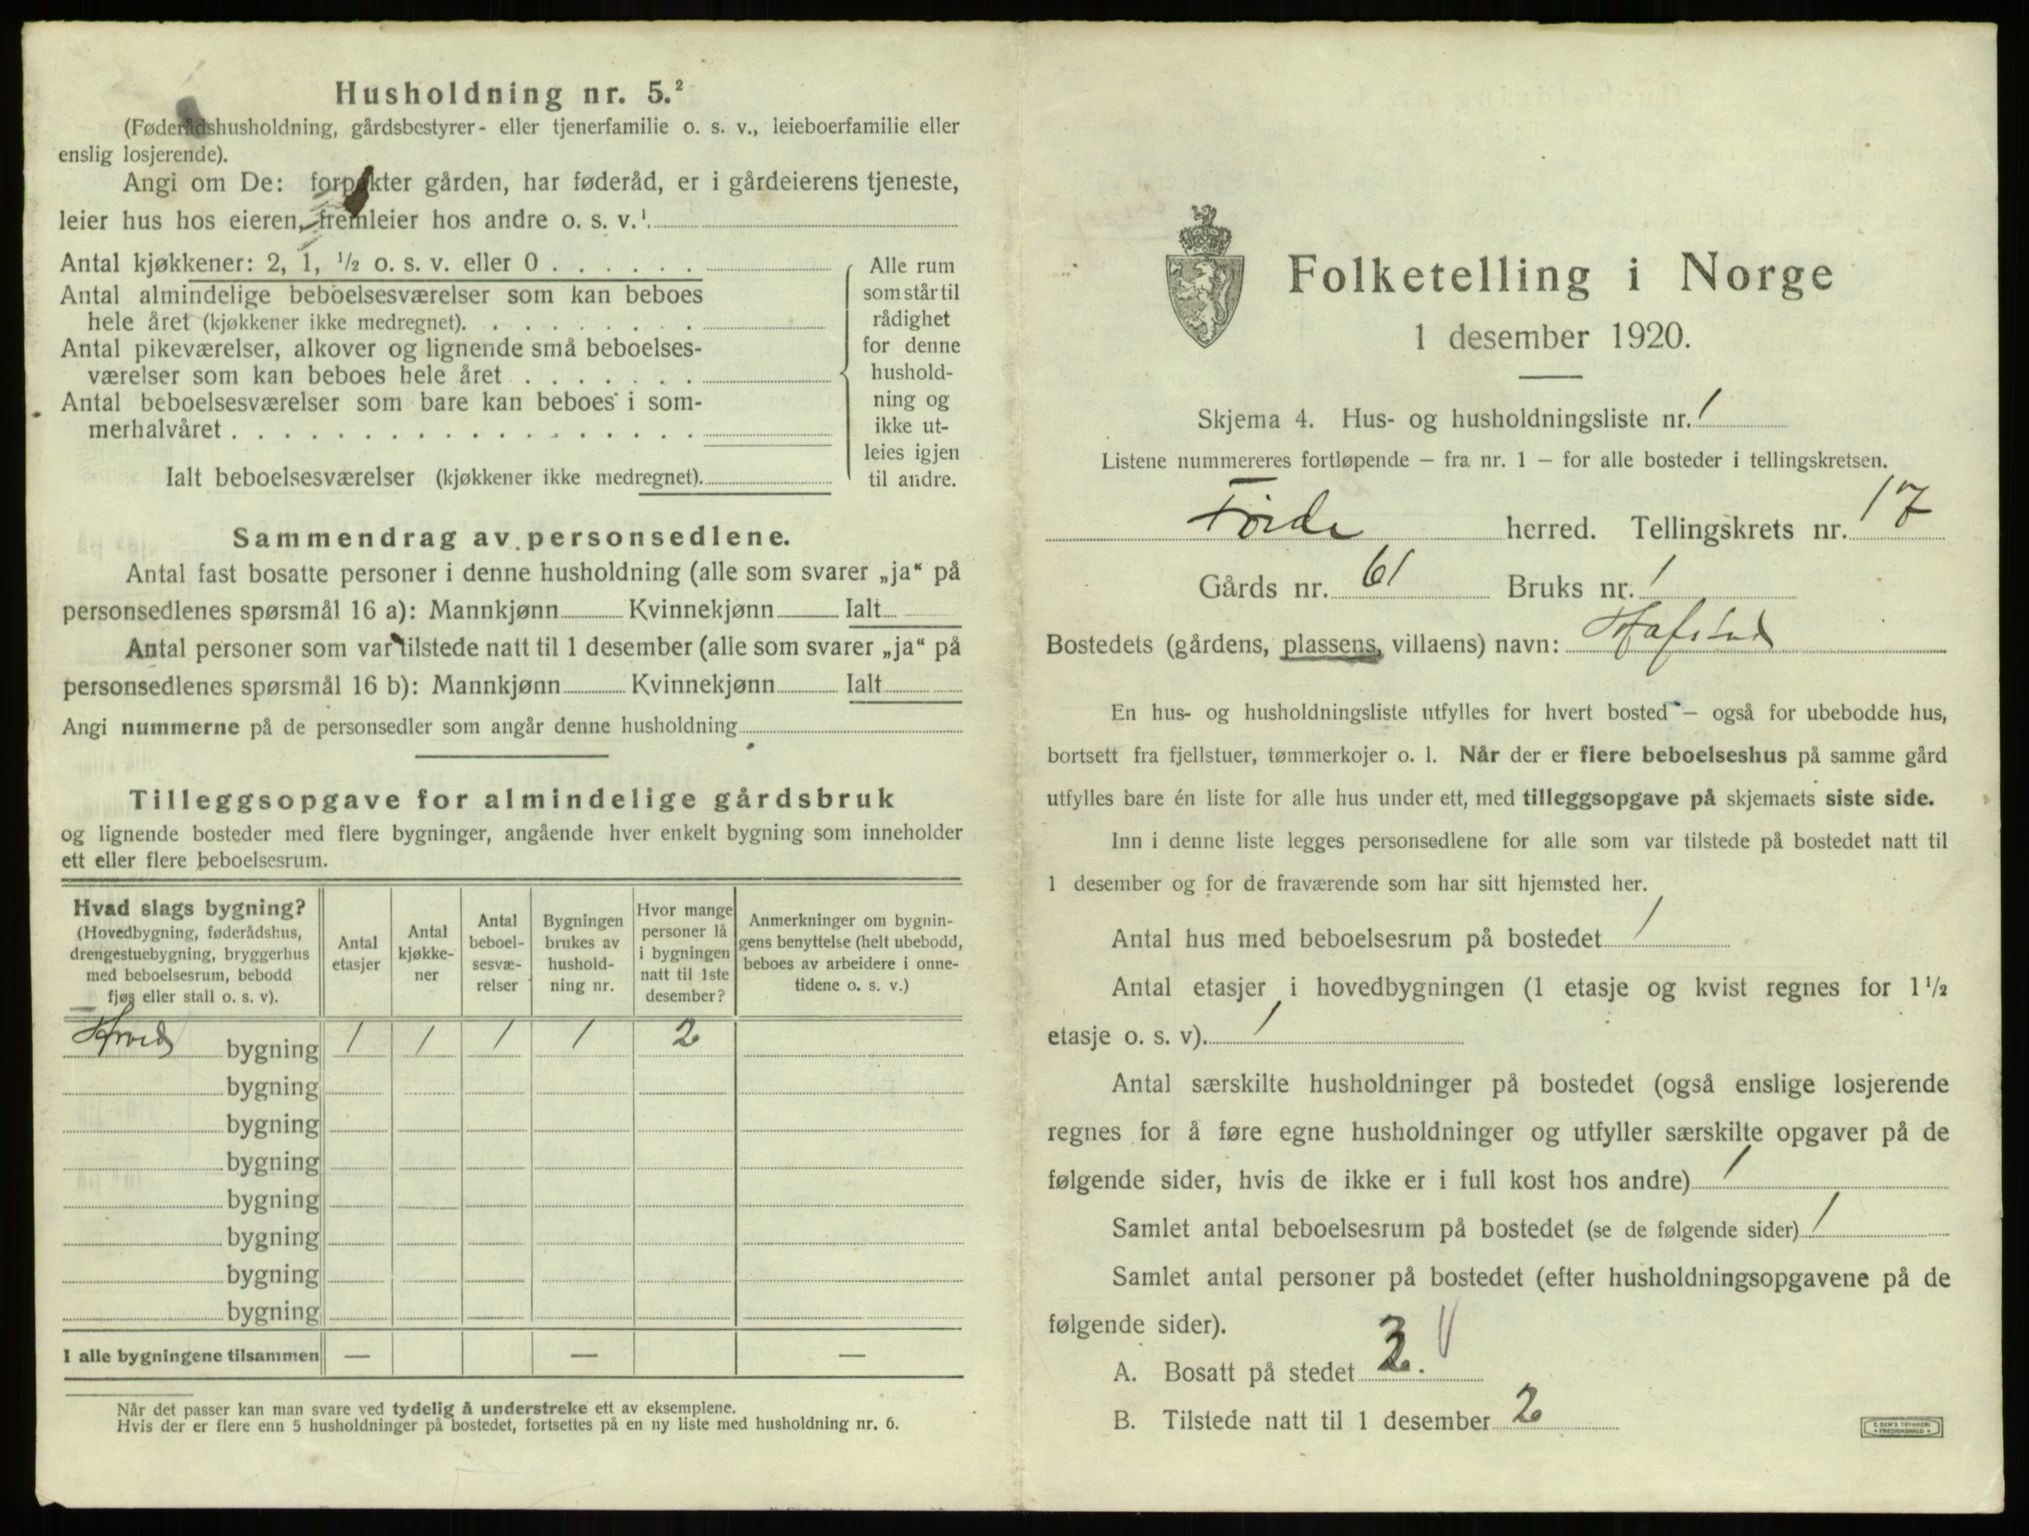 Husholdning nr. 5.²
(Føderådshusholdning, gårdsbestyrer- eller tjenerfamilie o. s. v., leieboerfamilie eller
enslig losjerende).
Angi om De: forpakter gården, har føderåd, er i gårdeierens tjeneste,
leier hus hos eieren, fremleier hos andre o. s. v.¹
Antal kjøkkener: 2, 1, ½ o. s. v. eller 0 . . . . . .
Antal almindelige beboelsesværelser som kan beboes
hele året (kjøkkener ikke medregnet). . . . . . . . .
Antal pikeværelser, alkover og lignende små beboelses-
værelser som kan beboes hele året . . . . . . .
Antal beboelsesværelser som bare kan beboes i som-
merhalvåret . . . . . . . . . . . . . . . . . .
Ialt beboelsesværelser (kjøkkener ikke medregnet).
Alle rum
som står til
rådighet
for denne
hushold-
ning og
ikke ut-
leies igjen
til andre.
Sammendrag av personsedlene.
Antal fast bosatte personer i denne husholdning (alle som svarer „ja“ på
personsedlenes spørsmål 16 a): Mannkjønn Kvinnekjønn Ialt
Antal personer som var tilstede natt til 1 desember (alle som svarer „ja“ på
personsedlenes spørsmål 16 b): Mannkjønn Kvinnekjønn Ialt
Angi nummerne på de personsedler som angår denne husholdning
Tilleggsopgave for almindelige gårdsbruk
og lignende bosteder med flere bygninger, angående hver enkelt bygning som inneholder
ett eller flere beboelsesrum.
Hvad slags bygning?
(Hovedbygning, føderådshus,
drengestuebygning, bryggerhus
med beboelsesrum, bebodd
fjøs eller stall o. s. v).
Antal
etasjer
Antal
kjøkke-
ner
Antal
beboel-
sesvæ-
relser
Bygningen
brukes av
hushold-
ning nr.
Hvor mange
personer lå
i bygningen
natt til 1ste
desember?
Anmerkninger om bygnin-
gens benyttelse (helt ubebodd,
beboes av arbeidere i onne-
tidene o. s. v.)
Hoved bygning 1 1 1 1 2
bygning
bygning
bygning
bygning
bygning
bygning
bygning
I alle bygningene tilsammen — — —
Når det passer kan man svare ved tydelig å understreke ett av eksemplene.
Hvis der er flere enn 5 husholdninger på bostedet, fortsettes på en ny liste med husholdning nr. 6.
Folketelling i Norge
1 desember 1920.
Skjema 4. Hus- og husholdningsliste nr. 1
Listene nummereres fortløpende – fra nr. 1 – for alle bosteder i tellingskretsen.
Førde herred. Tellingskrets nr. 17
Gårds nr. 61 Bruks nr. 1
Bostedets (gårdens, plassens, villaens) navn: Hafstad
En hus- og husholdningsliste utfylles for hvert bosted – også for ubebodde hus,
bortsett fra fjellstuer, tømmerkojer o. l. Når der er flere beboelseshus på samme gård
utfylles bare én liste for alle hus under ett, med tilleggsopgave på skjemaets siste side.
Inn i denne liste legges personsedlene for alle som var tilstede på bostedet natt til
1 desember og for de fraværende som har sitt hjemsted her.
Antal hus med beboelsesrum på bostedet 1
Antal etasjer i hovedbygningen (1 etasje og kvist regnes for 1½
etasje o. s. v). 1
Antal særskilte husholdninger på bostedet (også enslige losjerende
regnes for å føre egne husholdninger og utfyller særskilte opgaver på de
følgende sider, hvis de ikke er i full kost hos andre) 1
Samlet antal beboelsesrum på bostedet (se de følgende sider) 1
Samlet antal personer på bostedet (efter husholdningsopgavene på de
følgende sider).
A. Bosatt på stedet
B. Tilstede natt til 1 desember 2